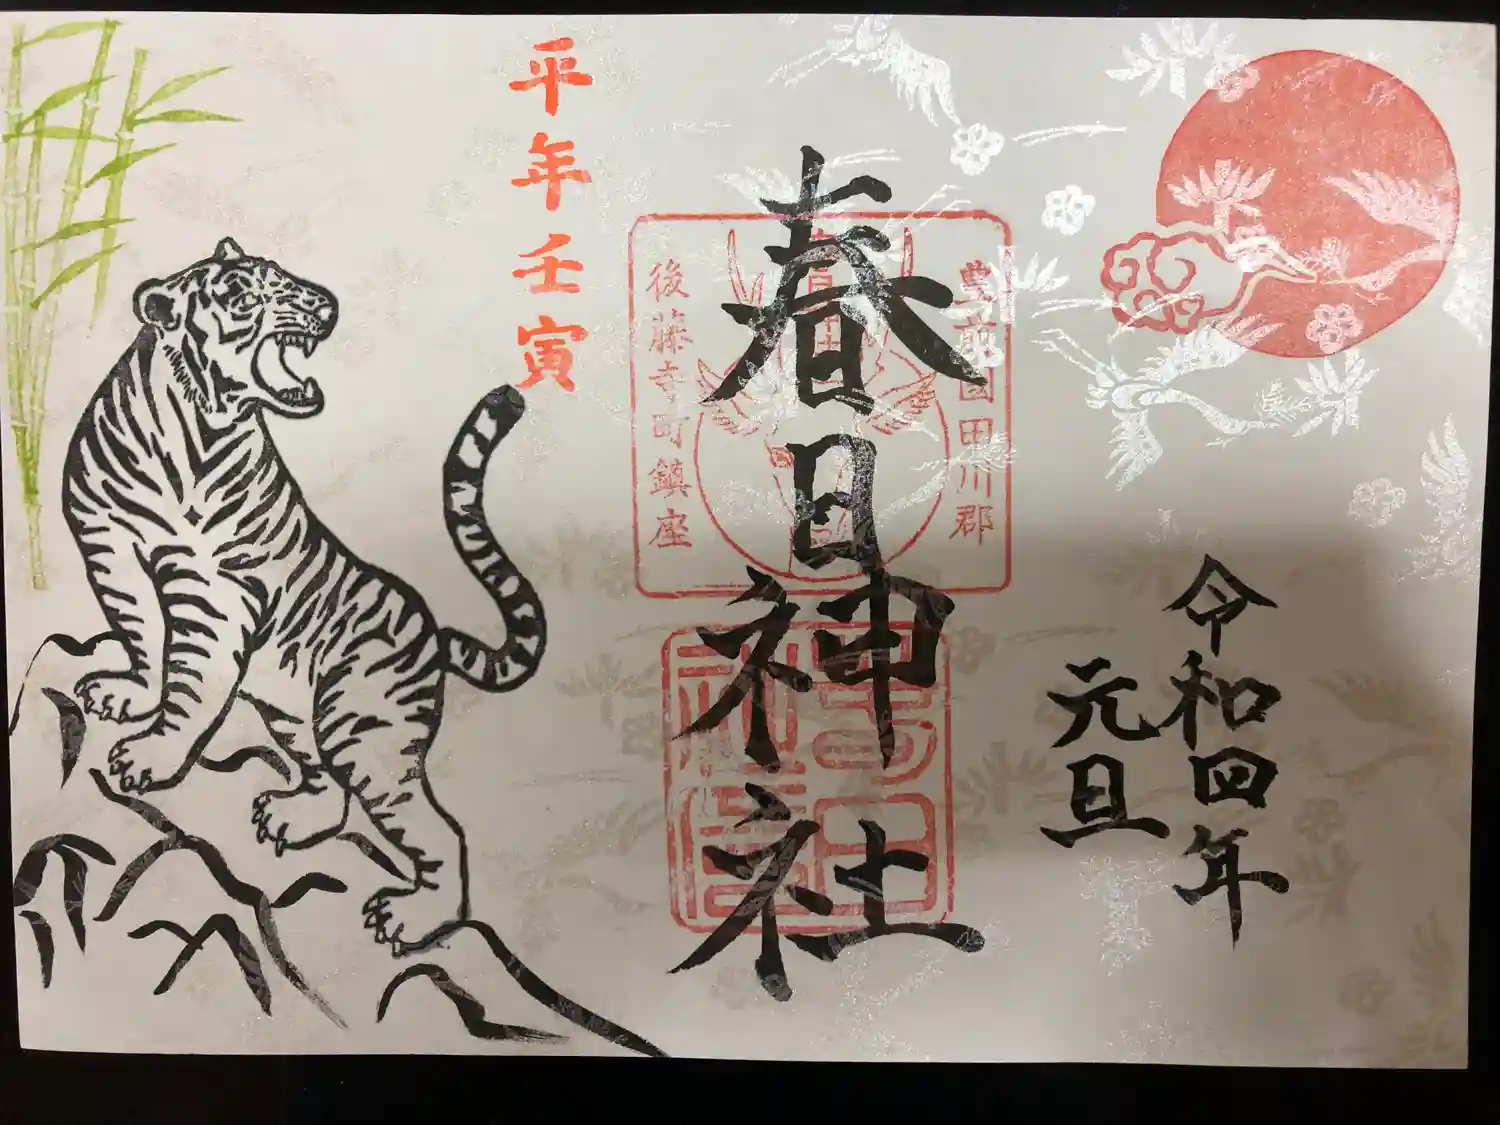 令和四年
元旦
春日神社
豊前國田川郡
後藤寺町鎮座
平年壬寅